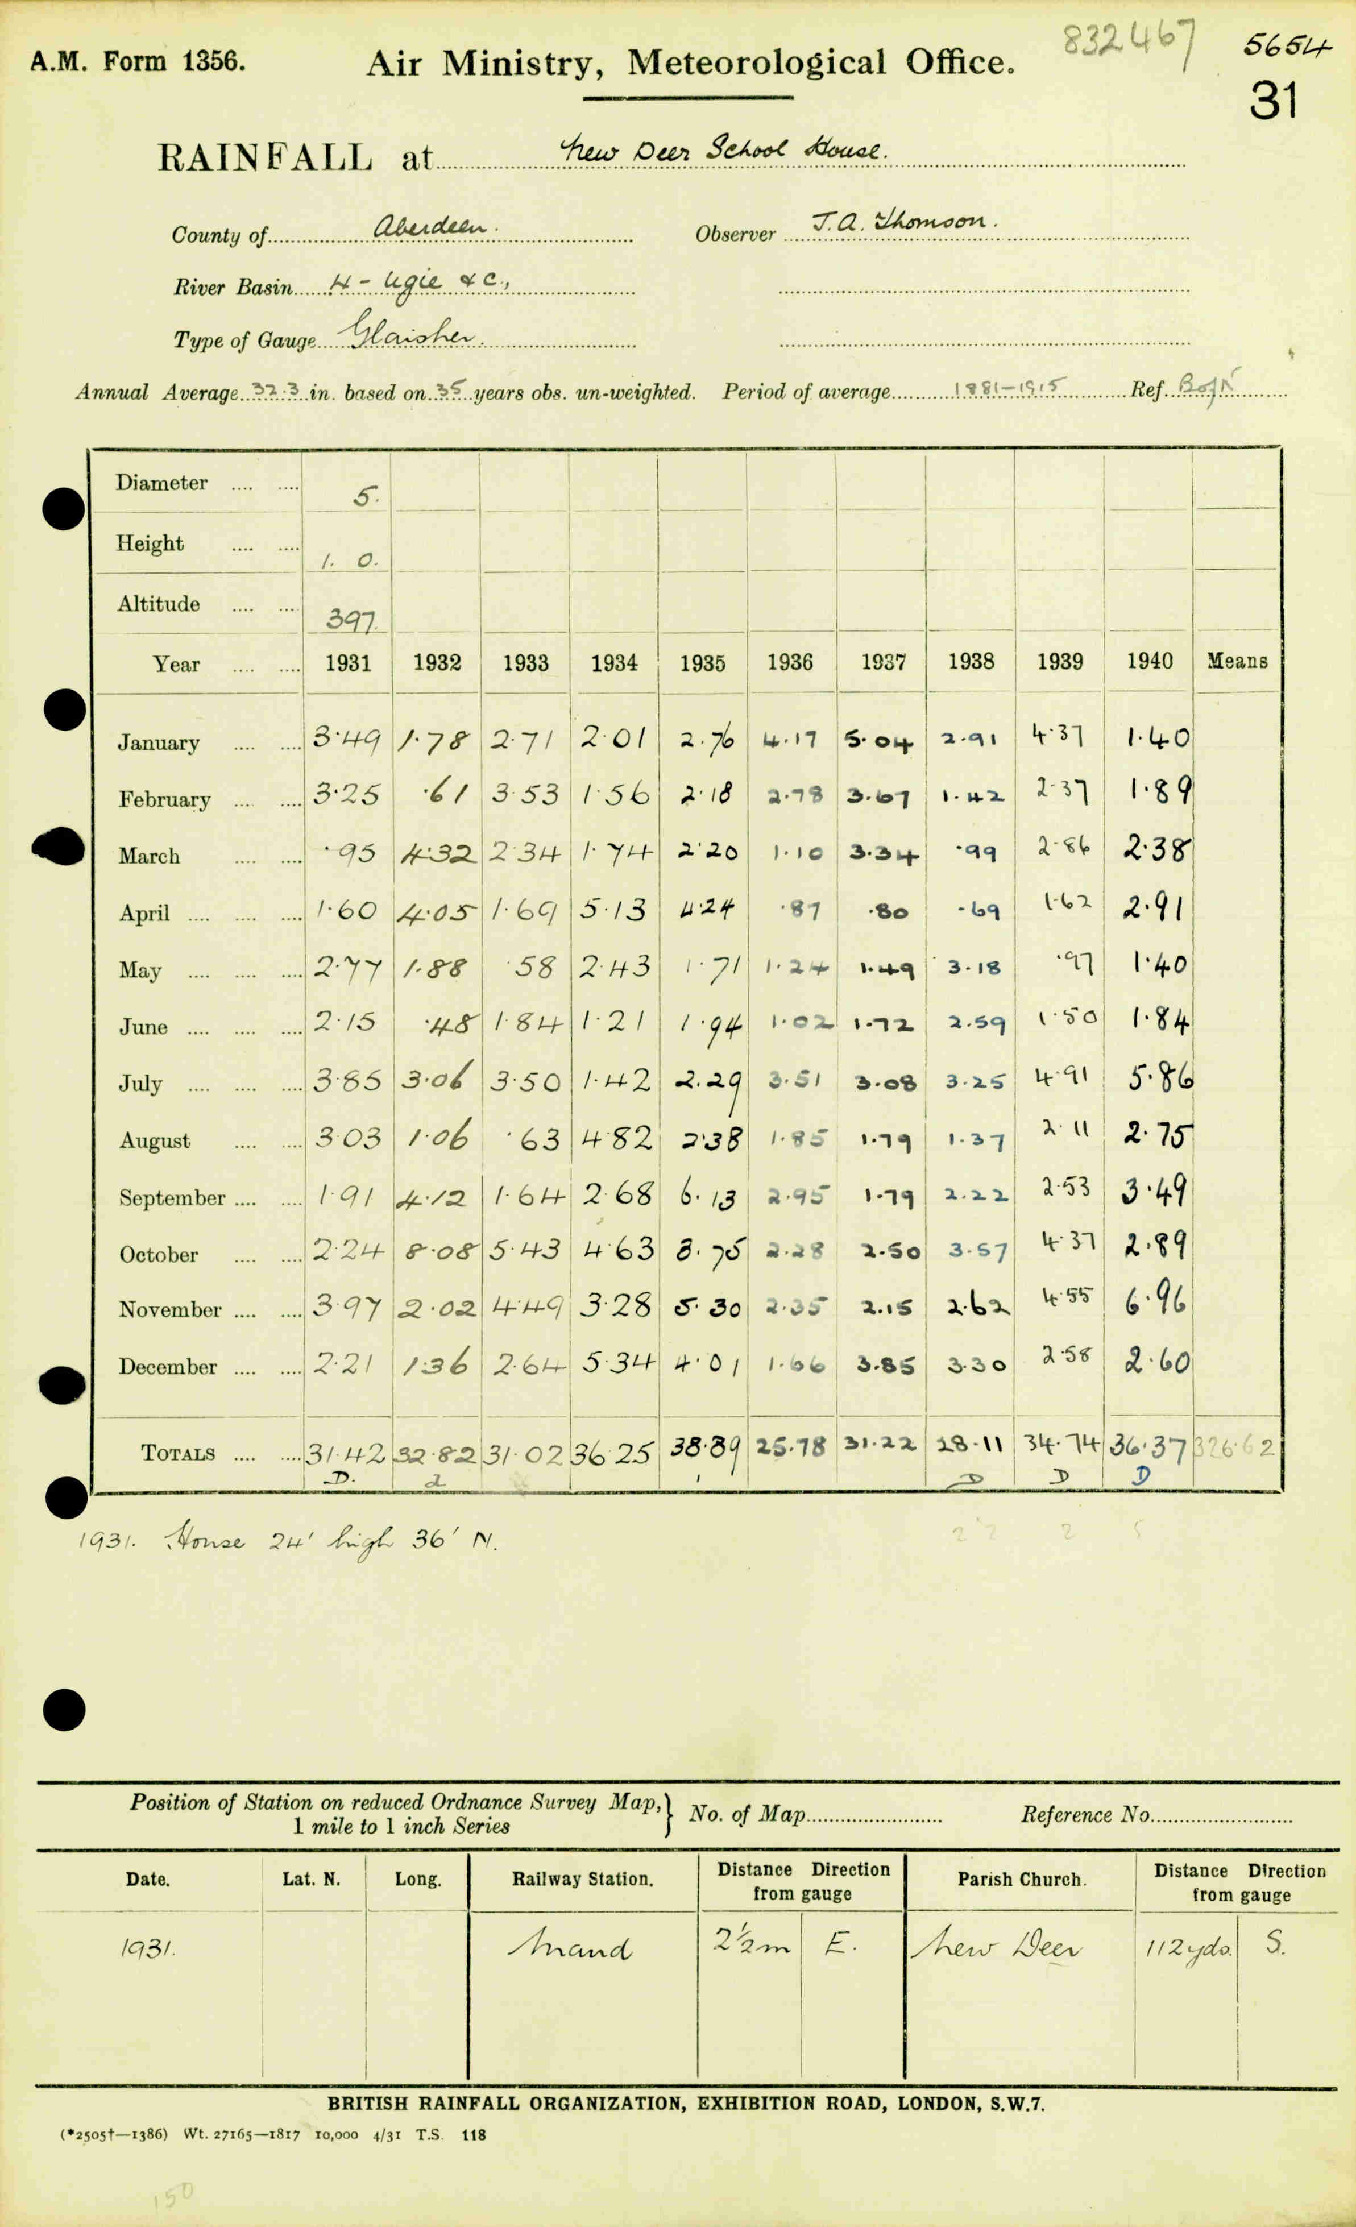 832467 5654
A.M. Form 1356. Air Ministry, Meteorological Office. 31
RAINFALL at New Deer School House.
County of Aberdeen. Observer J.A. Thomson.
River Basin 4 - Ugie &c.,
Type of Gauge Glaisher.
Annual Average 32.3 in. based on 35 years obs. un-weighted. Period of average 1881-1915 Ref. B of N
Diameter .... .... 5.
Height .... .... 1. 0.
Altitude .... .... 397
Year .... .... 1931 1932 1933 1934 1935 1936 1937 1938 1939 1940 Means
January .... .... 3.49 1.78 2.71 2.01 2.76 4.17 5.04 2.91 4.37 1.40
February .... .... 3.25 .61 3.53 1.56 2.18 2.78 3.67 1.42 2.37 1.89
March .... .... .95 4.32 2.34 1.74 2.20 1.10 3.34 .99 2.86 2.38
April .... .... .... 1.60 4.05 1.69 5.13 4.24 .87 .80 .69 1.62 2.91
May .... .... .... 2.77 1.88 .58 2.43 1.71 1.24 1.49 3.18 .97 1.40
June .... .... .... 2.15 .48 1.84 1.21 1.94 1.02 1.72 2.59 1.50 1.84
July .... .... .... 3.85 3.06 3.50 1.42 2.29 3.51 3.08 3.25 4.91 5.86
August .... .... 3.03 1.06 .63 4.82 2.38 1.85 1.79 1.37 2.11 2.75
September .... .... 1.91 4.12 1.64 2.68 6.13 2.95 1.79 2.22 2.53 3.49
October .... .... 2.24 8.08 5.43 4.63 3.75 2.28 2.50 3.57 4.37 2.89
November .... .... 3.97 2.02 4.49 3.28 5.30 2.35 2.15 2.62 4.55 6.96
December .... .... 2.21 1.36 2.64 5.34 4.01 1.66 3.85 3.30 2.58 2.60
TOTALS .... .... 31.42 32.82 31.02 36.25 38.89 25.78 31.22 28.11 34.74 36.37 326.62
D. d D D D
1931. House 24' high 36' N.
Position of Station on reduced Ordnance Survey Map, } No. of Map Reference No.
1 mile to 1 inch Series
Date. Lat. N. Long. Railway Station. Distance Direction from gauge Parish Church. Distance Direction from gauge
1931. Maud 2½m E. New Deer 112 yds. S.
BRITISH RAINFALL ORGANIZATION, EXHIBITION ROAD, LONDON, S.W.7.
(*2505†—1386) Wt. 27165—1817 10,000 4/31 T.S. 118
150